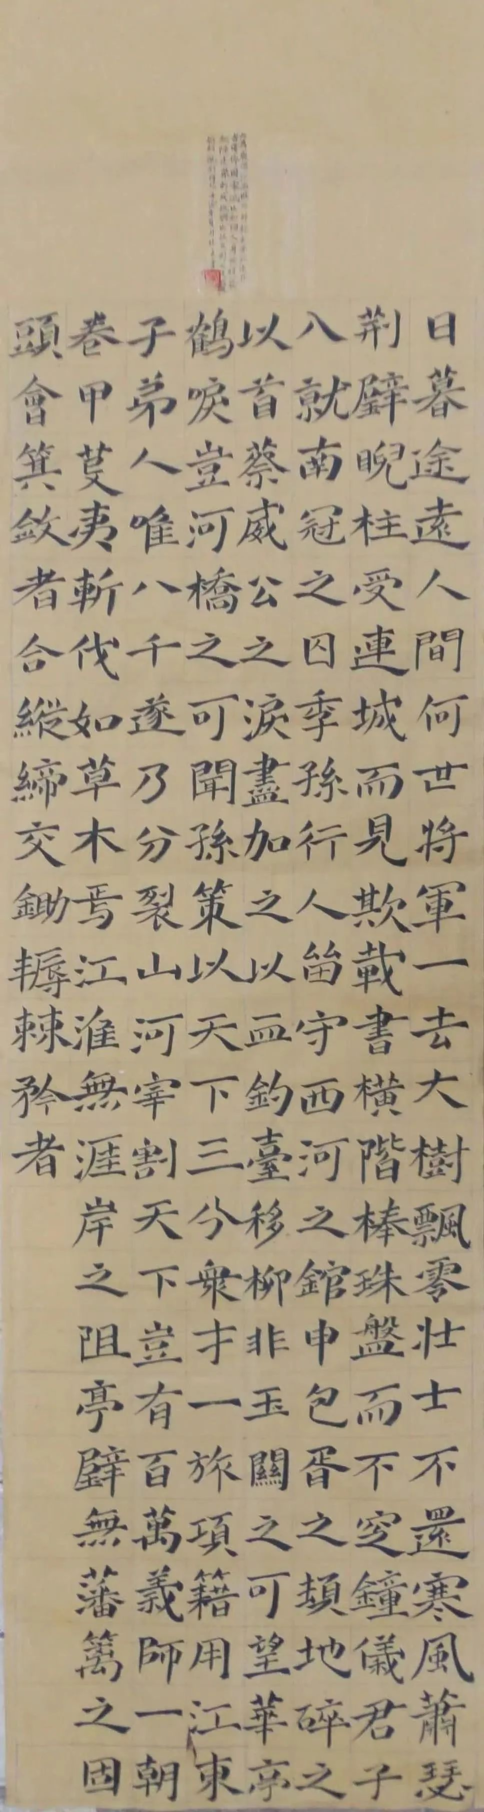 日暮途遠人間何世將軍一去大樹飄零壯士不還寒風蕭瑟
荆璧睨柱受連城而見欺載書橫階棒珠盤而不㝎鐘儀君子
入就南冠之囚季孫行人留守西河之館申包胥之頓地碎之
以首蔡威公之淚盡加之以血釣臺移柳非玉關之可望華亭
鶴唳豈河橋之可聞孫策以天下三分衆才一旅項籍用江東
子弟人唯八千遂乃分裂山河宰割天下豈有百萬義師一朝
卷甲芟夷斬伐如草木焉江淮無涯岸之阻亭壁無藩籬之固
頭會箕斂者合縱締交鋤耨棘矜者